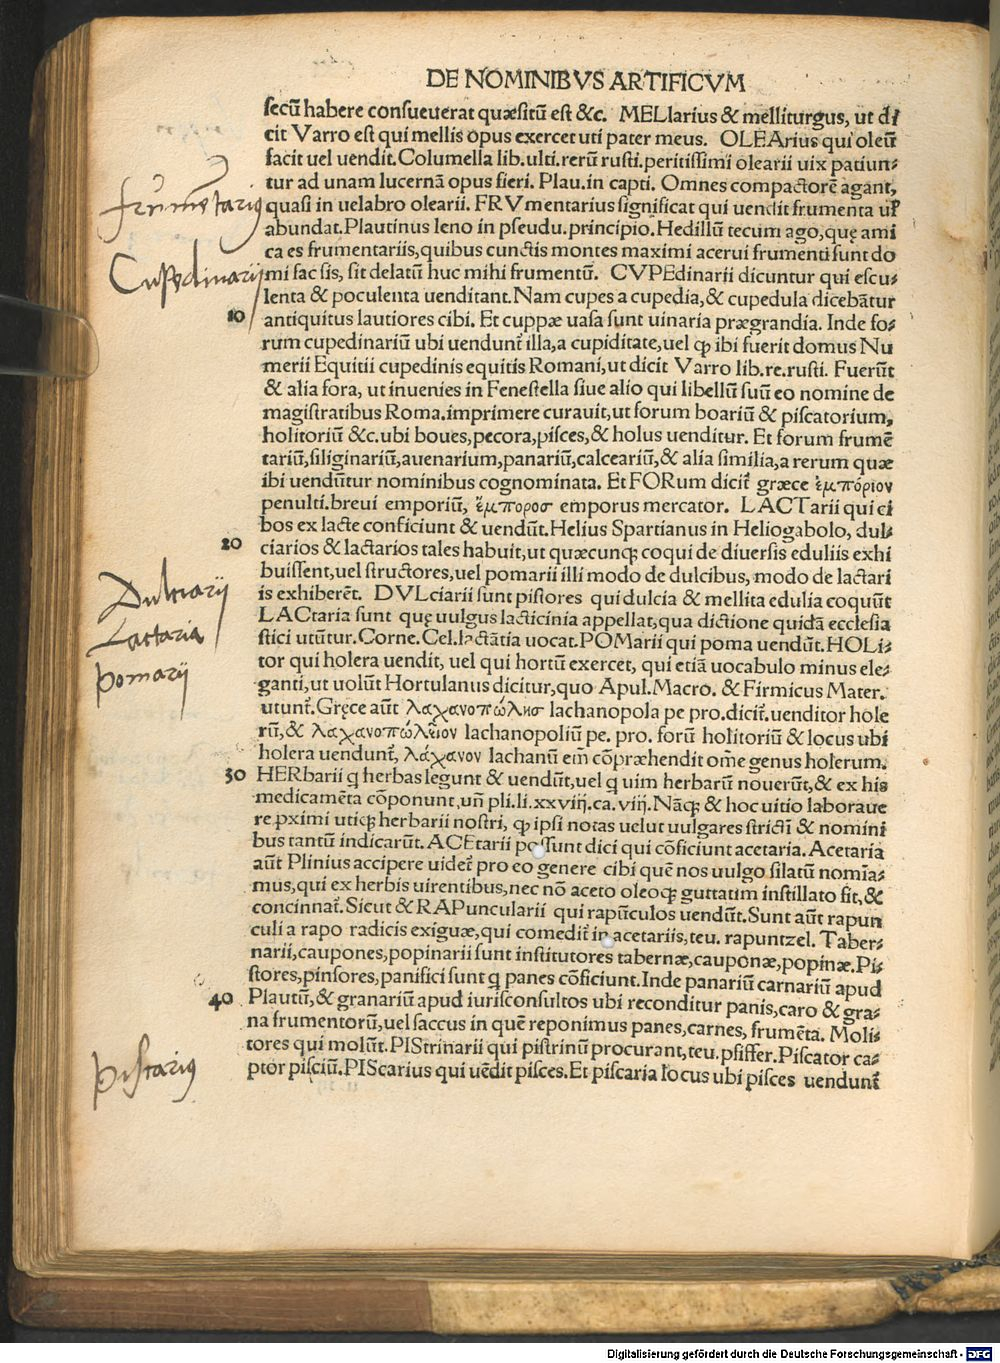 DE NOMINIBVS ARTIFICVM
secū habere consueuerat quæsitū est &c. MELlarius & melliturgus, ut di
cit Varro est qui mellis opus exercet uti pater meus. OLEArius qui oleū
facit uel uendit. Columella lib. ulti. rerū rusti. peritissimi olearii uix patiun-
tur ad unam lucernā opus fieri. Plau. in capti. Omnes compactorē agant,
frumētarius
quasi in uelabro olearii. FRVmentarius significat qui uendit frumenta ul̓
abundat. Plautinus leno in pseudu. principio. Hedillū tecum ago, quę ami
ca es frumentariis, quibus cunctis montes maximi acerui frumenti sunt do
Cupedinarij
mi fac sis, sit delatū huc mihi frumentū. CVPEdinarii dicuntur qui escu-
lenta & poculenta uenditant. Nam cupes a cupedia, & cupedula dicebātur
10 antiquitus lautiores cibi. Et cuppæ uasa sunt uinaria prægrandia. Inde fo-
rum cupedinariū ubi uendunt᷑ illa, a cupiditate, uel ꝙ ibi fuerit domus Nu
merii Equitii cupedinis equitis Romani, ut dicit Varro lib. re. rusti. Fuerūt
& alia fora, ut inuenies in Fenestella siue alio qui libellū suū eo nomine de
magistratibus Roma. imprimere curauit, ut forum boariū & piscatorium,
holitoriū &c. ubi boues, pecora, pisces, & holus uenditur. Et forum frumē
tariū, siliginariū, auenarium, panariū, calceariū, & alia similia, a rerum quæ
ibi uendūtur nominibus cognominata. Et FORum dicit᷑ græce ἐμπόριον
penulti. breui emporiū, ἔμποροσ emporus mercator. LACTarii qui ci
bos ex lacte conficiunt & uendūt. Helius Spartianus in Heliogabolo, dul-
20 ciarios & lactarios tales habuit, ut quæcunqꝫ coqui de diuersis eduliis exhi
buissent, uel structores, uel pomarii illi modo de dulcibus, modo de lactari
Dulciarij
is exhiberēt. DVLciarii sunt pistores qui dulcia & mellita edulia coquūt
Lactaria
LACtaria sunt quę uulgus lacticinia appellat, qua dictione quidā ecclesia
stici utūtur. Corne. Cel. lactātia uocat. POMarii qui poma uendūt. HOLi-
pomarij
tor qui holera uendit, uel qui hortū exercet, qui etiā uocabulo minus ele-
ganti, ut uolūt Hortulanus dicitur, quo Apul. Macro. & Firmicus Mater.
utunt᷑. Gręce aūt λαχανοπώλησ lachanopola pe pro. dicit᷑. uenditor hole
rū, & λαχανοπώλειον lachanopoliū pe. pro. forū holitoriū & locus ubi
holera uendunt᷑, λάχανον lachanū em̄ cōpræhendit om̄e genus holerum.
30 HERbarii q̇ herbas legunt & uendūt, uel q̇ uim herbarū nouerūt, & ex his
medicamēta cōponunt, un̄ pli. li. xxviij. ca. viij. Nāqꝫ & hoc uitio laboraue
re ꝓximi utiqꝫ herbarii nostri, ꝙ ipsi notas uelut uulgares strictī & nomini
bus tantū indicarūt. ACEtarii possunt dici qui cōficiunt acetaria. Acetaria
aūt Plinius accipere uidet᷑ pro eo genere cibi quē nos uulgo silatū nomīa-
mus, qui ex herbis uirentibus, nec nō aceto oleoqꝫ guttatim instillato fit, &
concinnat᷑. Sicut & RAPuncularii qui rapūculos uendūt. Sunt aūt rapun
culi a rapo radicis exiguæ, qui comedit᷑ in acetariis, teu. rapuntzel. Taber-
narii, caupones, popinarii sunt institutores tabernæ, cauponæ, popinæ. Pi-
stores, pinsores, panifici sunt q̇ panes cōficiunt. Inde panariū carnariū apud
40 Plautū, & granariū apud iurisconsultos ubi reconditur panis, caro & gra-
na frumentorū, uel saccus in quē reponimus panes, carnes, frumēta. Moli-
tores qui molūt. PIStrinarii qui pistrinū procurant, teu. pfiffer. Piscator ca-
piscarius
ptor pisciū. PIScarius qui uēdit pisces. Et piscaria locus ubi pisces uendunt᷑
Digitalisierung gefördert durch die Deutsche Forschungsgemeinschaft - DFG